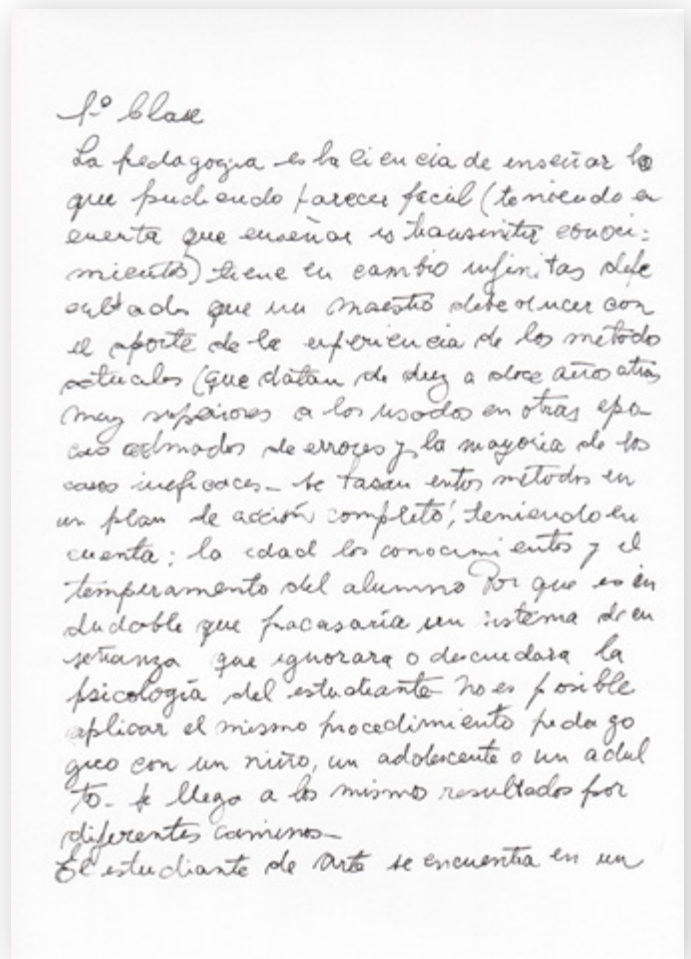 1º Clase
La pedagogia es la ciencia de enseñar lo
que pudiendo parecer facil (teniendo en
cuenta que enseñar es transmitir conoci-
mientos) tiene en cambio infinitas defi
cultades que un maestro debe vencer con
el aporte de la experiencia de los metodos
actuales (que datan de diez a doce años atras
muy superiores a los usados en otras epo-
cas colmados de errores y la mayoria de los
casos ineficaces - se basan estos metodos en
un plan de acción completo, teniendo en
cuenta; la edad los conocimientos y el
temperamento del alumno Por que es in
dudable que fracasaría un sistema de en
señanza que ignorara o descuidara la
psicología del estudiante no es posible
aplicar el mismo procedimiento pedago
gico con un niño, un adolescente o un adul
to - se llega a los mismo resultados por
diferentes caminos -
El estudiante de Arte se encuentra en un